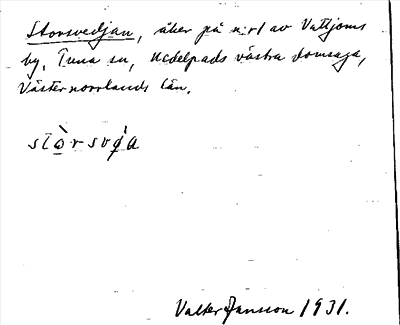 Storsvedjan, åker på n:r 1 av Vattjoms
by, Tuna sn, Medelpads västra domsaga,
Västernorrlands län.
Valter Jansson 1931.